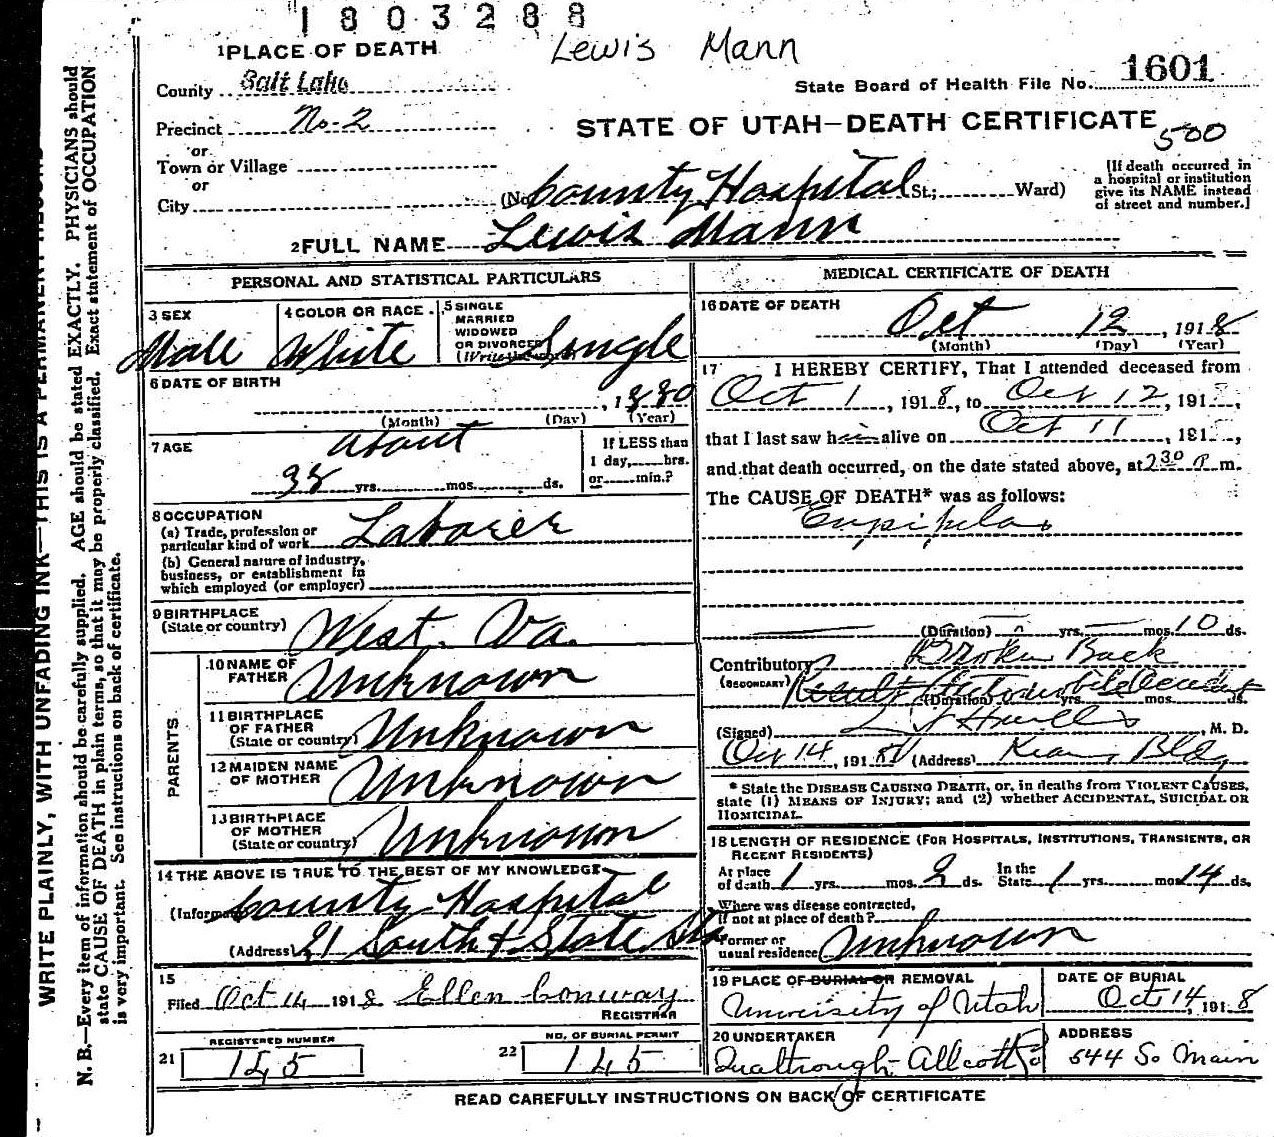 1803288
Lewis Mann
1 PLACE OF DEATH
County Salt Lake
State Board of Health File No. 1601
Precinct No-2
STATE OF UTAH—DEATH CERTIFICATE
500
or
Town or Village
or
City
(No. County Hospital St.; Ward)
[If death occurred in
a hospital or institution
give its NAME instead
of street and number.]
2 FULL NAME Lewis Mann
PERSONAL AND STATISTICAL PARTICULARS
3 SEX
Male
4 COLOR OR RACE
White
5 SINGLE
MARRIED
WIDOWED
OR DIVORCED
Single
6 DATE OF BIRTH
, 1880
(Month) (Day) (Year)
7 AGE
about
38 yrs. mos. ds.
If LESS than
1 day, hrs.
or min.?
8 OCCUPATION
(a) Trade, profession or
particular kind of work Laborer
(b) General nature of industry,
business, or establishment in
which employed (or employer)
9 BIRTHPLACE
(State or country) West. Va.
PARENTS
10 NAME OF
FATHER Unknown
11 BIRTHPLACE
OF FATHER
(State or country) Unknown
12 MAIDEN NAME
OF MOTHER Unknown
13 BIRTHPLACE
OF MOTHER
(State or country) Unknown
14 THE ABOVE IS TRUE TO THE BEST OF MY KNOWLEDGE
(Informant) County Hospital
(Address) 21 South & State Sts
15
Filed Oct 14 1918 Ellen Conway
REGISTRAR
REGISTERED NUMBER
21 145
NO. OF BURIAL PERMIT
22 145
MEDICAL CERTIFICATE OF DEATH
16 DATE OF DEATH
Oct 12, 1918
(Month) (Day) (Year)
17 I HEREBY CERTIFY, That I attended deceased from
Oct 1, 1918, to Oct 12, 191
that I last saw him alive on Oct 11, 191
and that death occurred, on the date stated above, at 2 30 P m.
The CAUSE OF DEATH* was as follows:
(Duration) yrs. mos. 10 ds.
Contributory Broken Back
(SECONDARY) Result Automobile Accident
(Duration) yrs. mos. ds.
(Signed) , M. D.
Oct 14, 1918 (Address) Kearns Bldg
* State the DISEASE CAUSING DEATH, or, in deaths from VIOLENT CAUSES,
state (1) MEANS OF INJURY; and (2) whether ACCIDENTAL, SUICIDAL OR
HOMICIDAL.
18 LENGTH OF RESIDENCE (FOR HOSPITALS, INSTITUTIONS, TRANSIENTS, OR
RECENT RESIDENTS)
At place
of death 1 yrs. mos. 2 ds. In the
State 1 yrs. mos. 14 ds.
Where was disease contracted,
if not at place of death?
Former or
usual residence Unknown
19 PLACE OF BURIAL OR REMOVAL
University of Utah
DATE OF BURIAL
Oct 14, 1918
20 UNDERTAKER
Qualtrough-Allcott Co
ADDRESS
544 So Main
READ CAREFULLY INSTRUCTIONS ON BACK OF CERTIFICATE
WRITE PLAINLY, WITH UNFADING INK—THIS IS A PERMANENT RECORD
N. B.—Every item of information should be carefully supplied. AGE should be stated EXACTLY. PHYSICIANS should
state CAUSE OF DEATH in plain terms, so that it may be properly classified. Exact statement of OCCUPATION
is very important. See instructions on back of certificate.